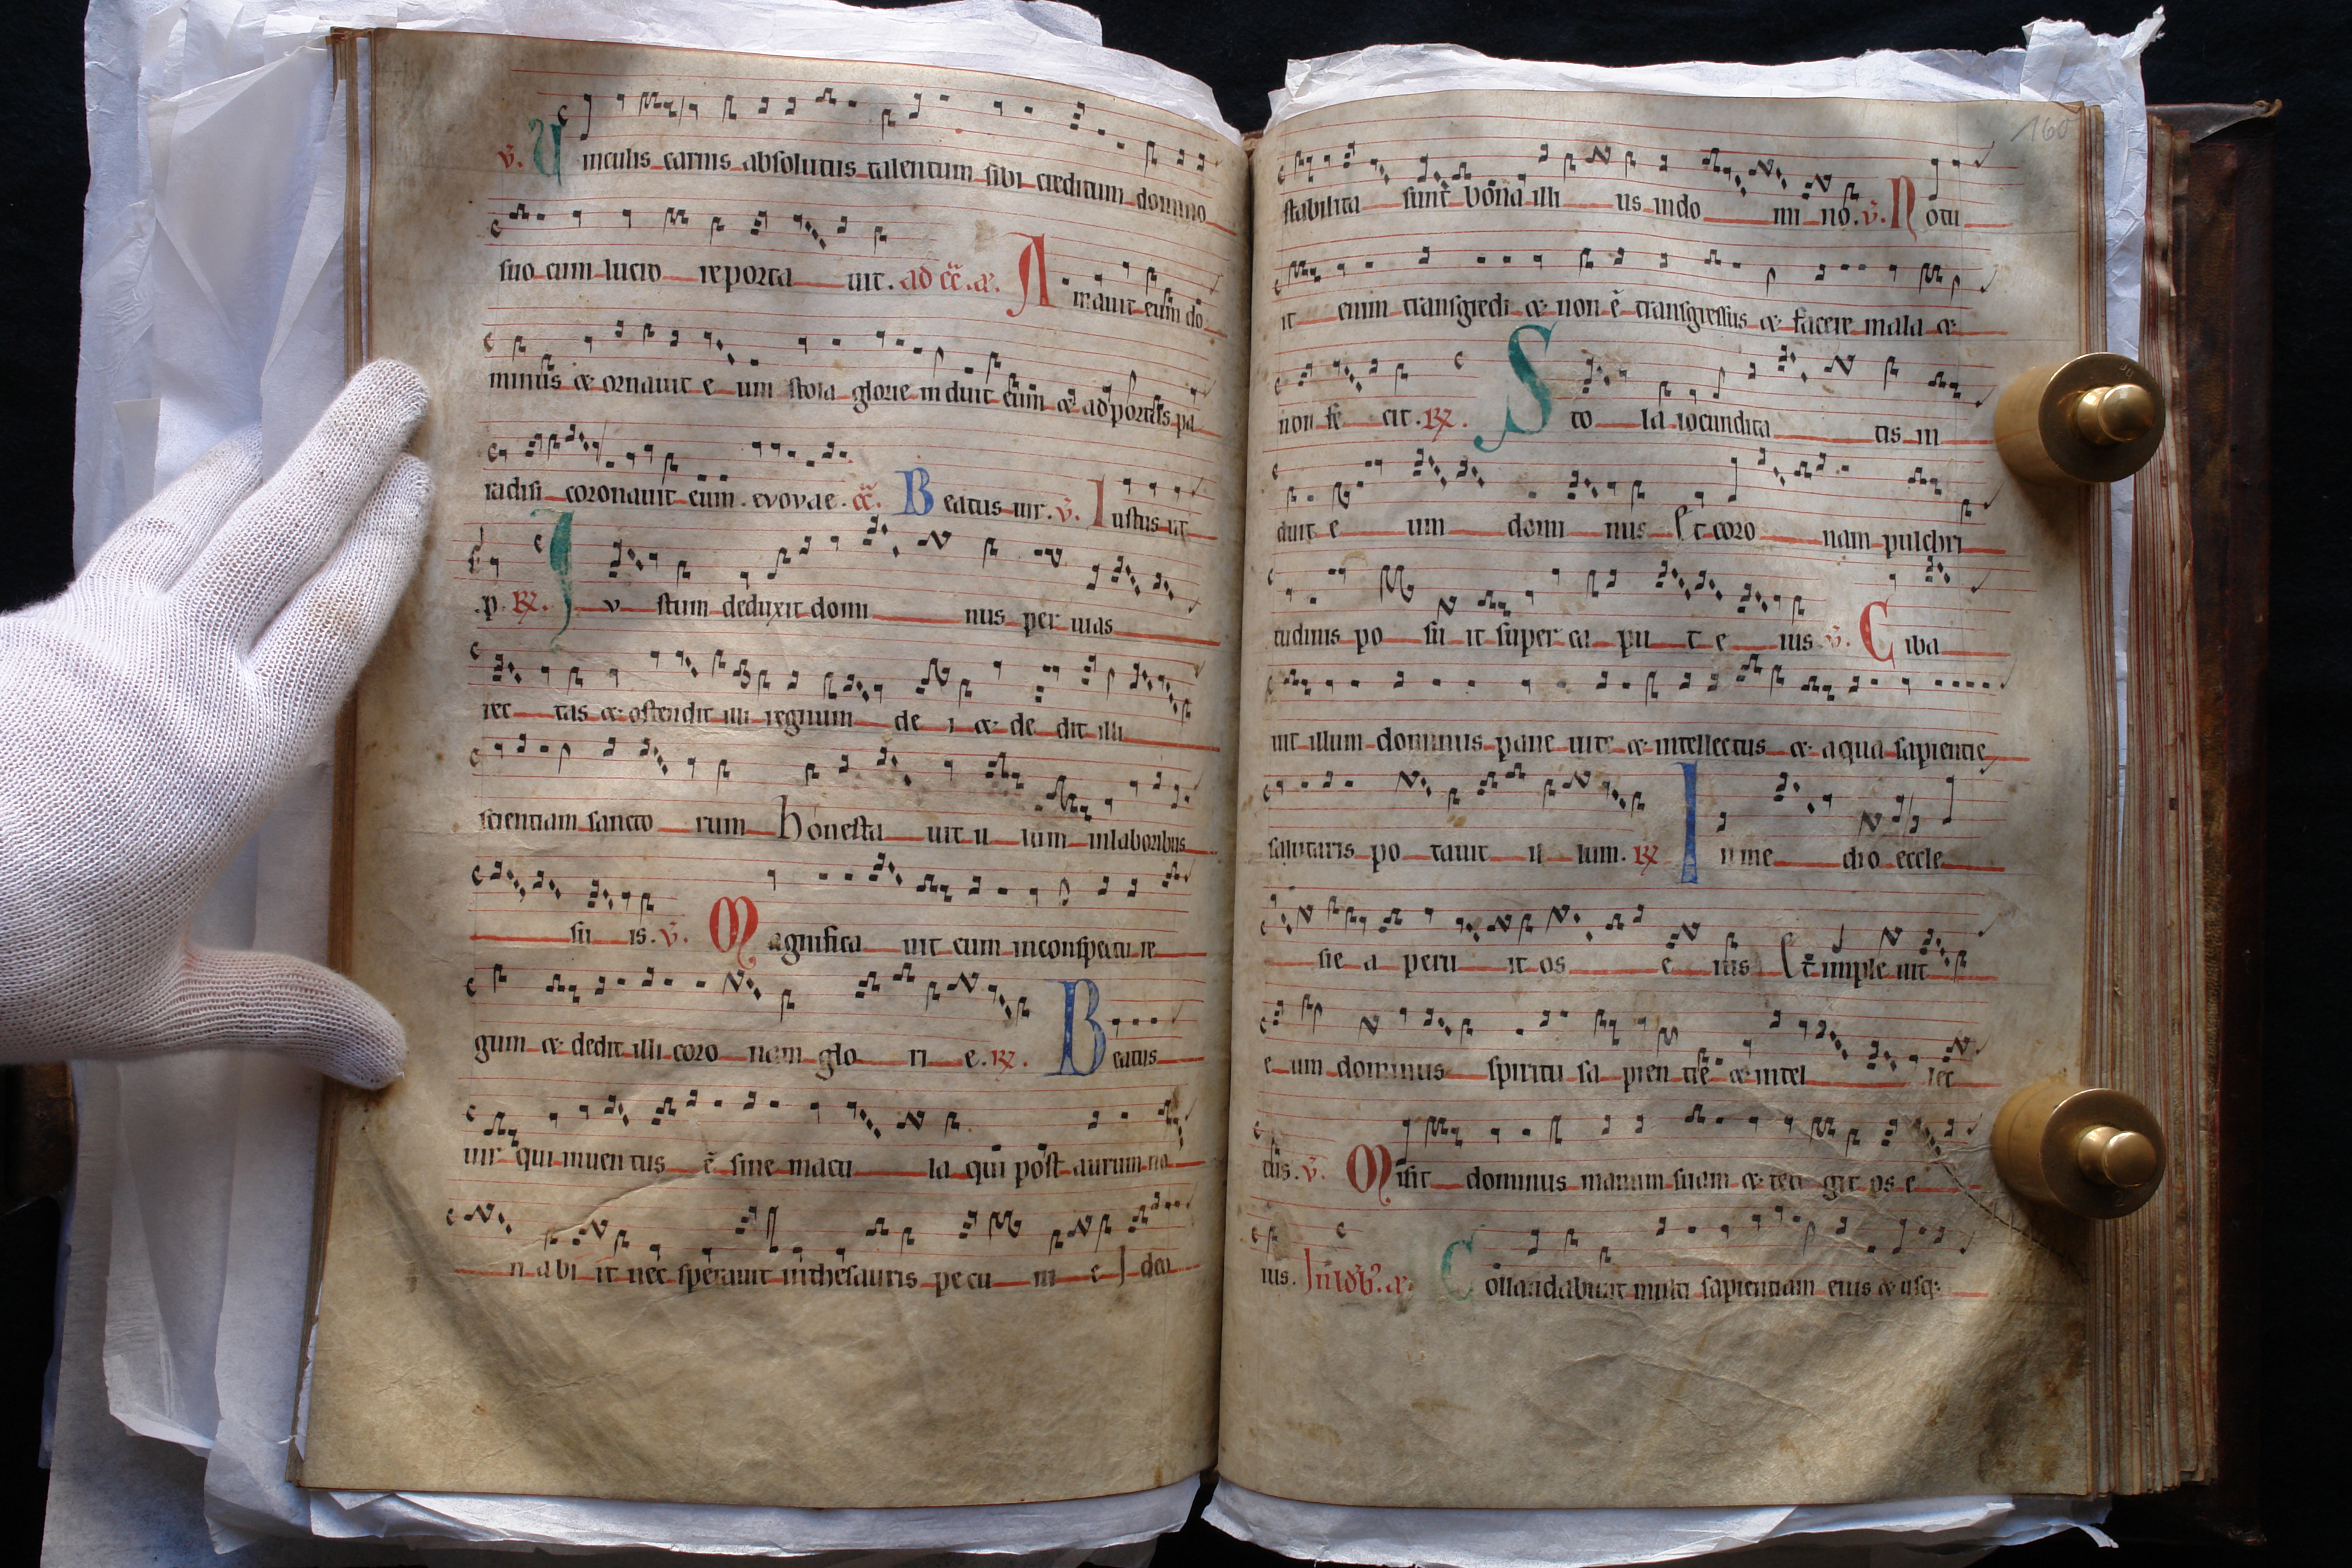 v̄. Uinculis carnis absolutus talentum sibi creditum domino
suo cum lucro reporta uit. ad cc̄. a. Amauit eum do
minus & ornauit e um stola glorie induit eum & ad portas pa
radisi coronauit eum. evovae. cc̄. Beatus uir. v̄. Iustus ut
p. R. Iv stum deduxit domi nus per uias
rec tas & ostendit illi regnum de i & de dit illi
scientiam sancto rum honesta uit il lum in laboribus
su is. v̄. Magnifica uit eum in conspectu re
gum & dedit illi coro nam glo ri e. R. Beatus
uir qui inuen tus ē sine macu la qui post aurum no
n abi it nec sperauit in thesauris pecu ni e Idea
160
stabilita sunt bona illi us in do mi no. v̄. Potu
it enim transgredi & non ē transgressus & facere mala &
non fe cit. R. Sto la iocundita tis in
duit e um domi nus Et coro nam pulchri
tudinis po su it super ca pu t e ius v̄. Ciba
uit illum dominus pane uite & intellectus & aqua sapientie
salutaris po tauit il lum. R. In me dio eccle
sie a peru it os e ius Et imple uit
e um dominus spiritu sa pien tie & intel lec
tus. v̄. Misit dominus manum suam & teti git os e
ius. Collaudabunt multi sapientiam eius & usq;